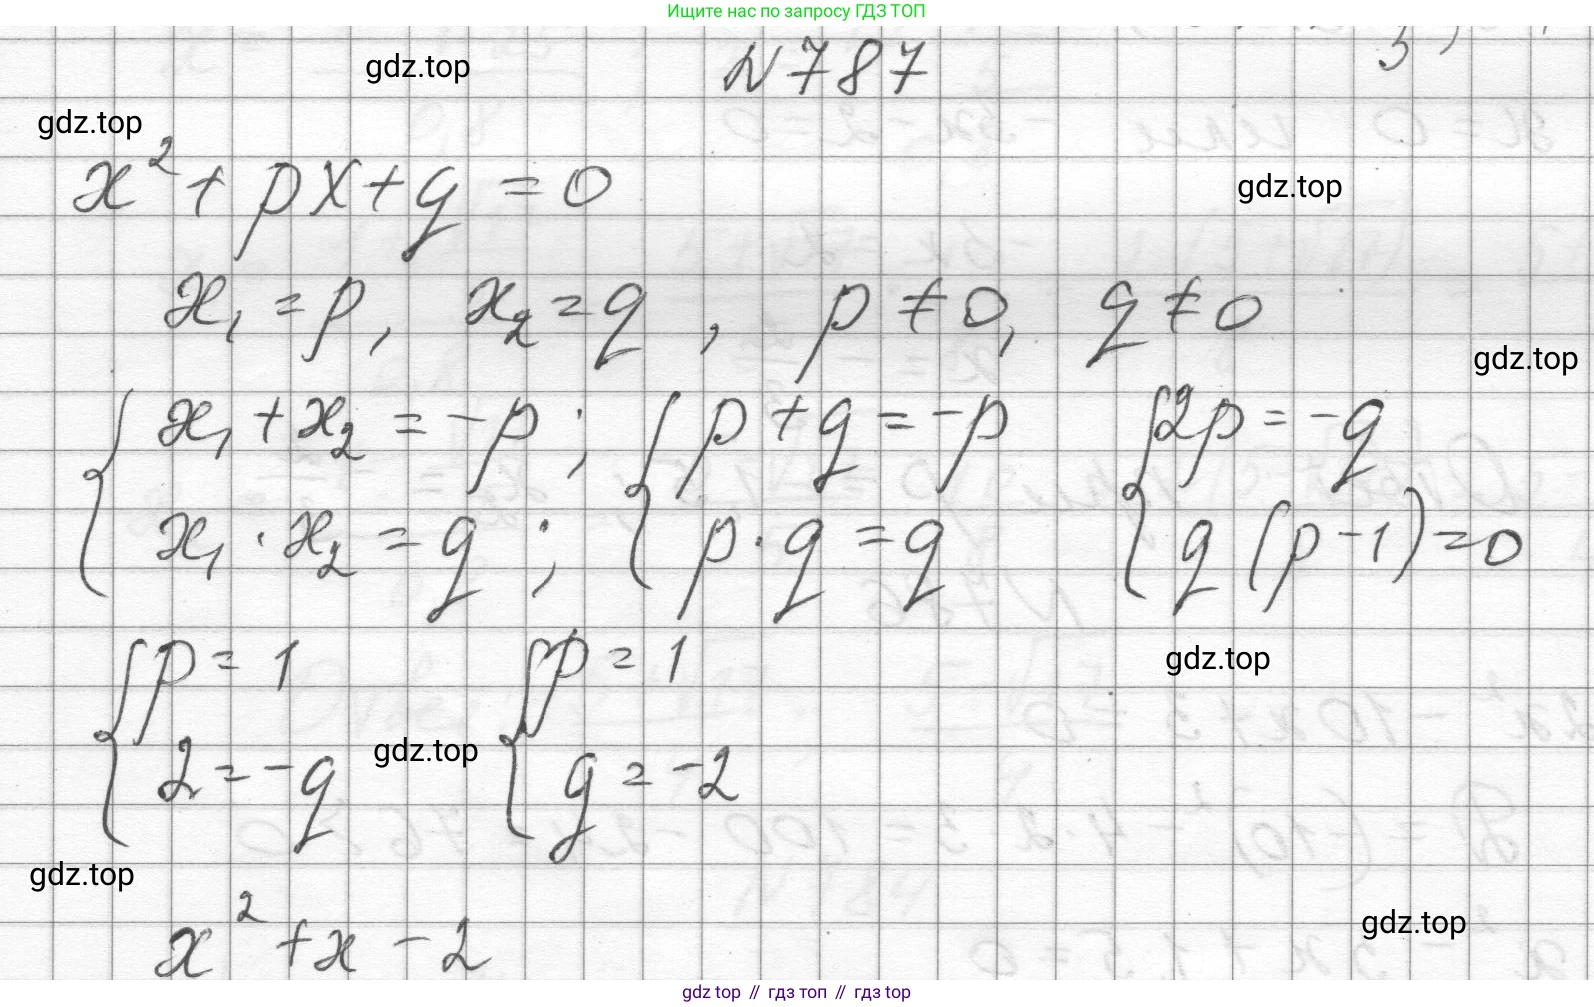 Ищите нас по запросу ГДЗ ТОП
gdz.top
N787
gdz.top
x² + px + q = 0
gdz.top
x₁ = p, x₂ = q, p ≠ 0, q ≠ 0
gdz.top
{ x₁ + x₂ = -p ; { p + q = -p { 2p = -q
{ x₁ · x₂ = q ; { p · q = q { q (p - 1) = 0
gdz.top
{ p = 1 { p = 1
{ 2 = -q { q = -2
gdz.top
gdz.top
x² + x - 2
gdz.top
gdz top // гдз топ // гдз top